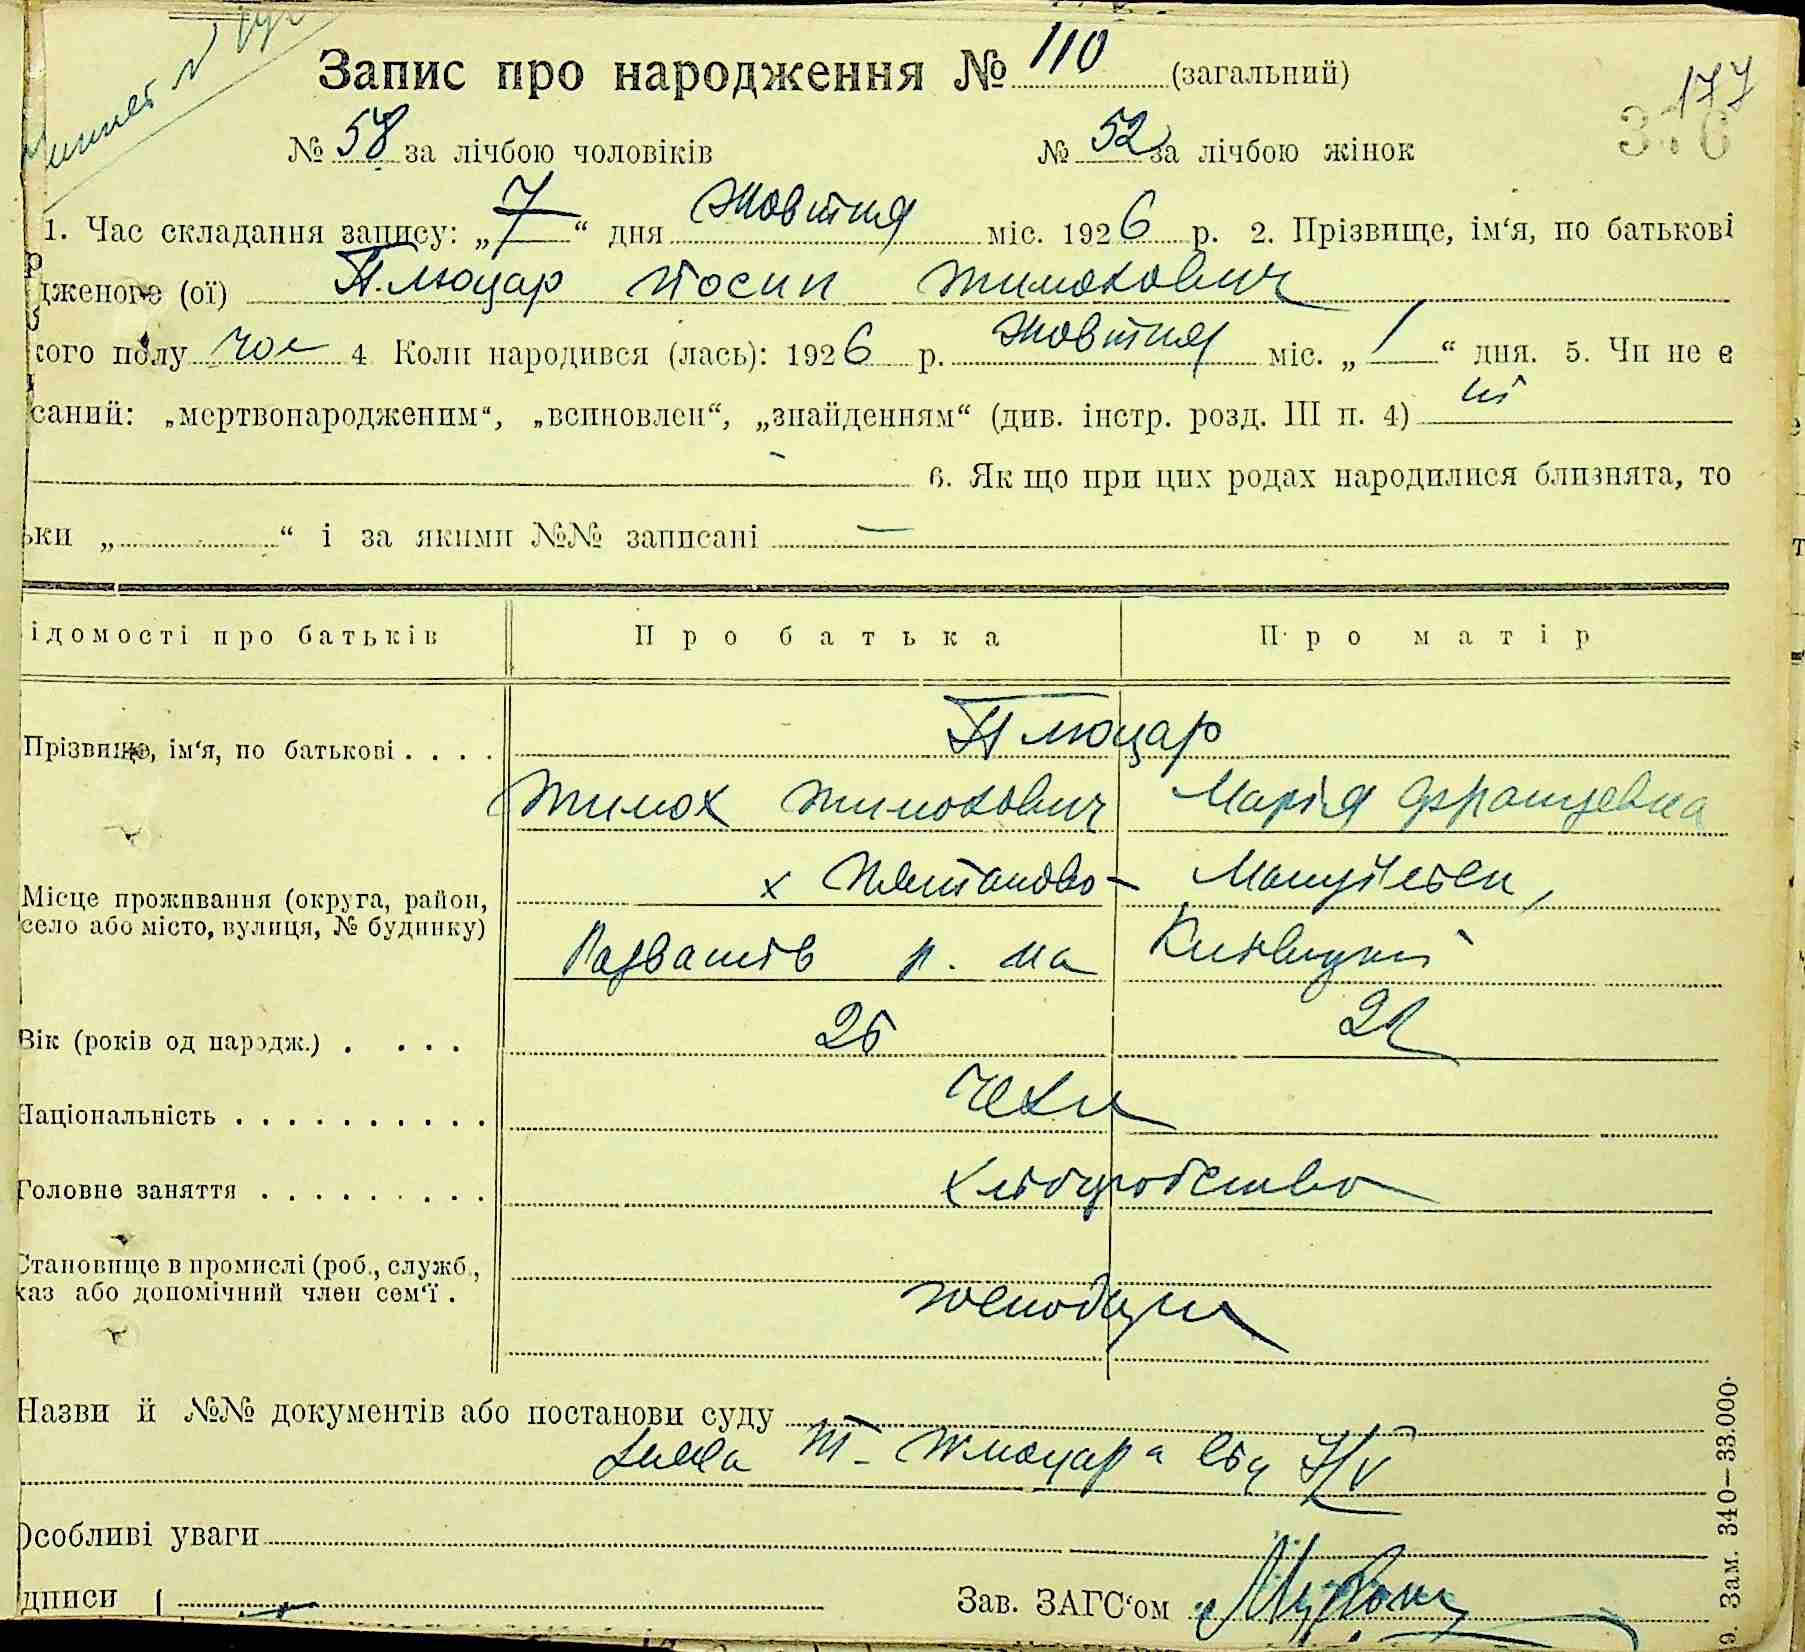 Запис про народження № 110 (загальний)
177
№ 58 за лічбою чоловіків № 52 за лічбою жінок
1. Час складання запису: „7“ дня жовтня міс. 1926 р. 2. Прізвище, ім‘я, по батькові
дженого (ої) Плюцар Йосип Тимохович
кого полу чол 4 Коли народився (лась): 1926 р. жовтня міс. „1“ дня. 5. Чи не є
саний: „мертвонародженим“, „всиновлен“, „знайденням“ (див. інстр. розд. III п. 4) ні
6. Як що при цих родах народилися близнята, то
ьки „ “ і за якими №№ записані —
ідомості про батьків Про батька Про матір
Плюцар
Прізвище, ім‘я, по батькові . . . .
Тимох Тимохович Марія Францевна
Місце проживання (округа, район, х
село або місто, вулиця, № будинку)
р. на
Вік (років од народж.) . . . . 25 21
Чехи
Національність . . . . . . . . . .
Головне заняття . . . . . . . . . хліборобство
Становище в промислі (роб., служб.,
каз або допомічний член сем‘ї . господари
Назви й №№ документів або постанови суду
Т. Плюцара
Особливі уваги
дписи Зав. ЗАГС‘ом
Зам. 340—33.000.